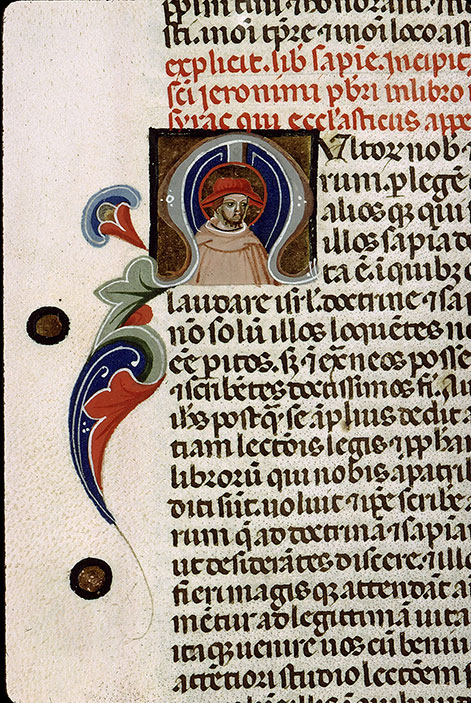 sti. moī tp̄re ⁊ moī loco assi
explicit. lib̄ sapīe. incipit
sc̄i ieronimi p̄bri in libro
syrac qui ecclasticus appe
Multor nob̄
rum. p̱ legē
alios qꝫ qui
illos sapīa
ta ē. ī quibꝫ
laudare isrl̄. doctrine ⁊ sa
nō solū illos loquētes n
eē pitos. sꝫ ⁊ extͣneos posse
⁊ scribētes doctissimos fi.
ih̄s postqͣꝫ se āplius dedit
tiam lectōis legis ⁊ ꝓphaꝝ
librorū qui nobis a patri
diti sūt. uoluit ⁊ ip̄e scribe
rum q̄ ad doctrinā ⁊ sapīa
ut desiderātes discere. ⁊ ill
fieri magis qꝫ attendāt a
mētur ad legittimā uitā
itaqꝫ uenire uos cū beniu
attētiori studio lectōem